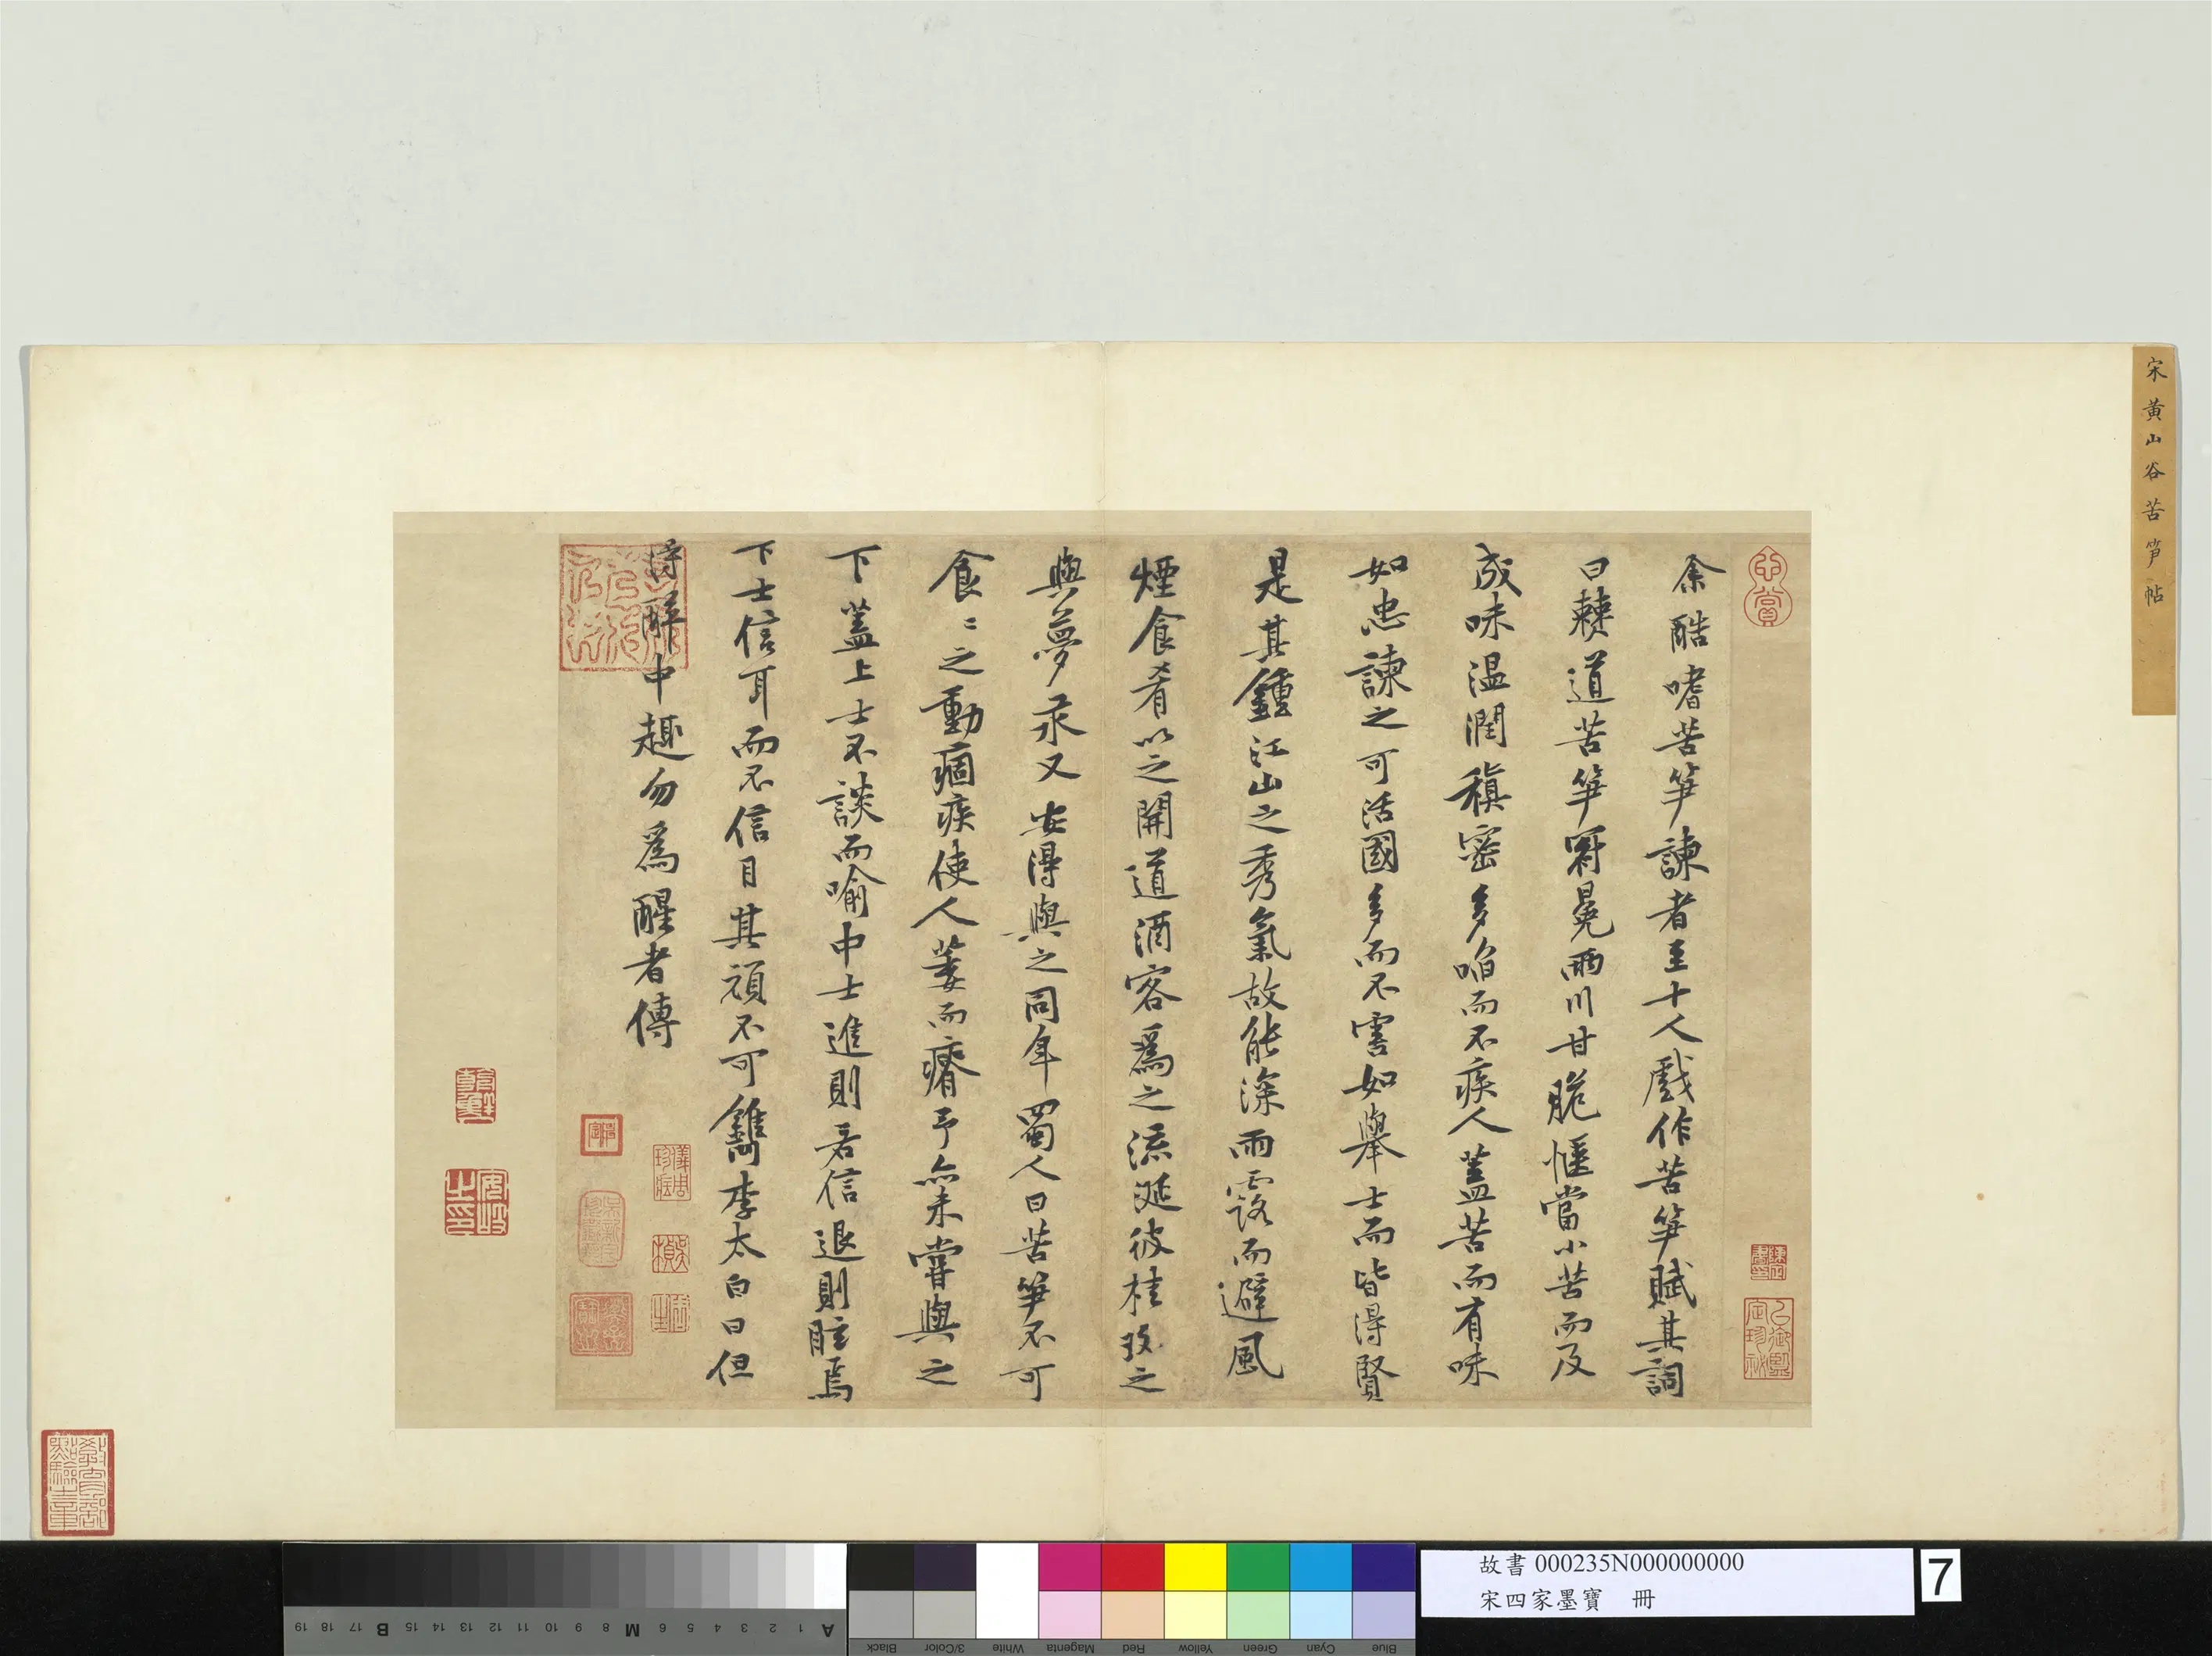 宋黃山谷苦笋帖
余酷嗜苦笋諫者至十人戲作苦笋賦其詞
曰僰道苦笋冠冕兩川甘脆愜當小苦而及
成味溫潤稹密多啗而不疾人蓋苦而有味
如忠諫之可活國多而不害如舉士而皆得賢
是其鍾江山之秀氣故能深雨露而避風
煙食肴以之開道酒客爲之流涎彼桂玫之
與夢汞又安得與之同年蜀人曰苦笋不可
食〻之動痼疾使人萎而瘠予亦未嘗與之
下蓋上士不談而喻中士進則若信退則眩焉
下士信耳而不信目其頑不可鐫李太白曰但
得醉中趣勿爲醒者傳
教育部點驗之章
故書 000235N000000000
宋四家墨寶 冊
7
A 1 2 3 4 5 6 M 8 9 10 11 12 13 14 15 B 17 18 19
Black 3/Color White Magenta Red Yellow Green Cyan Blue